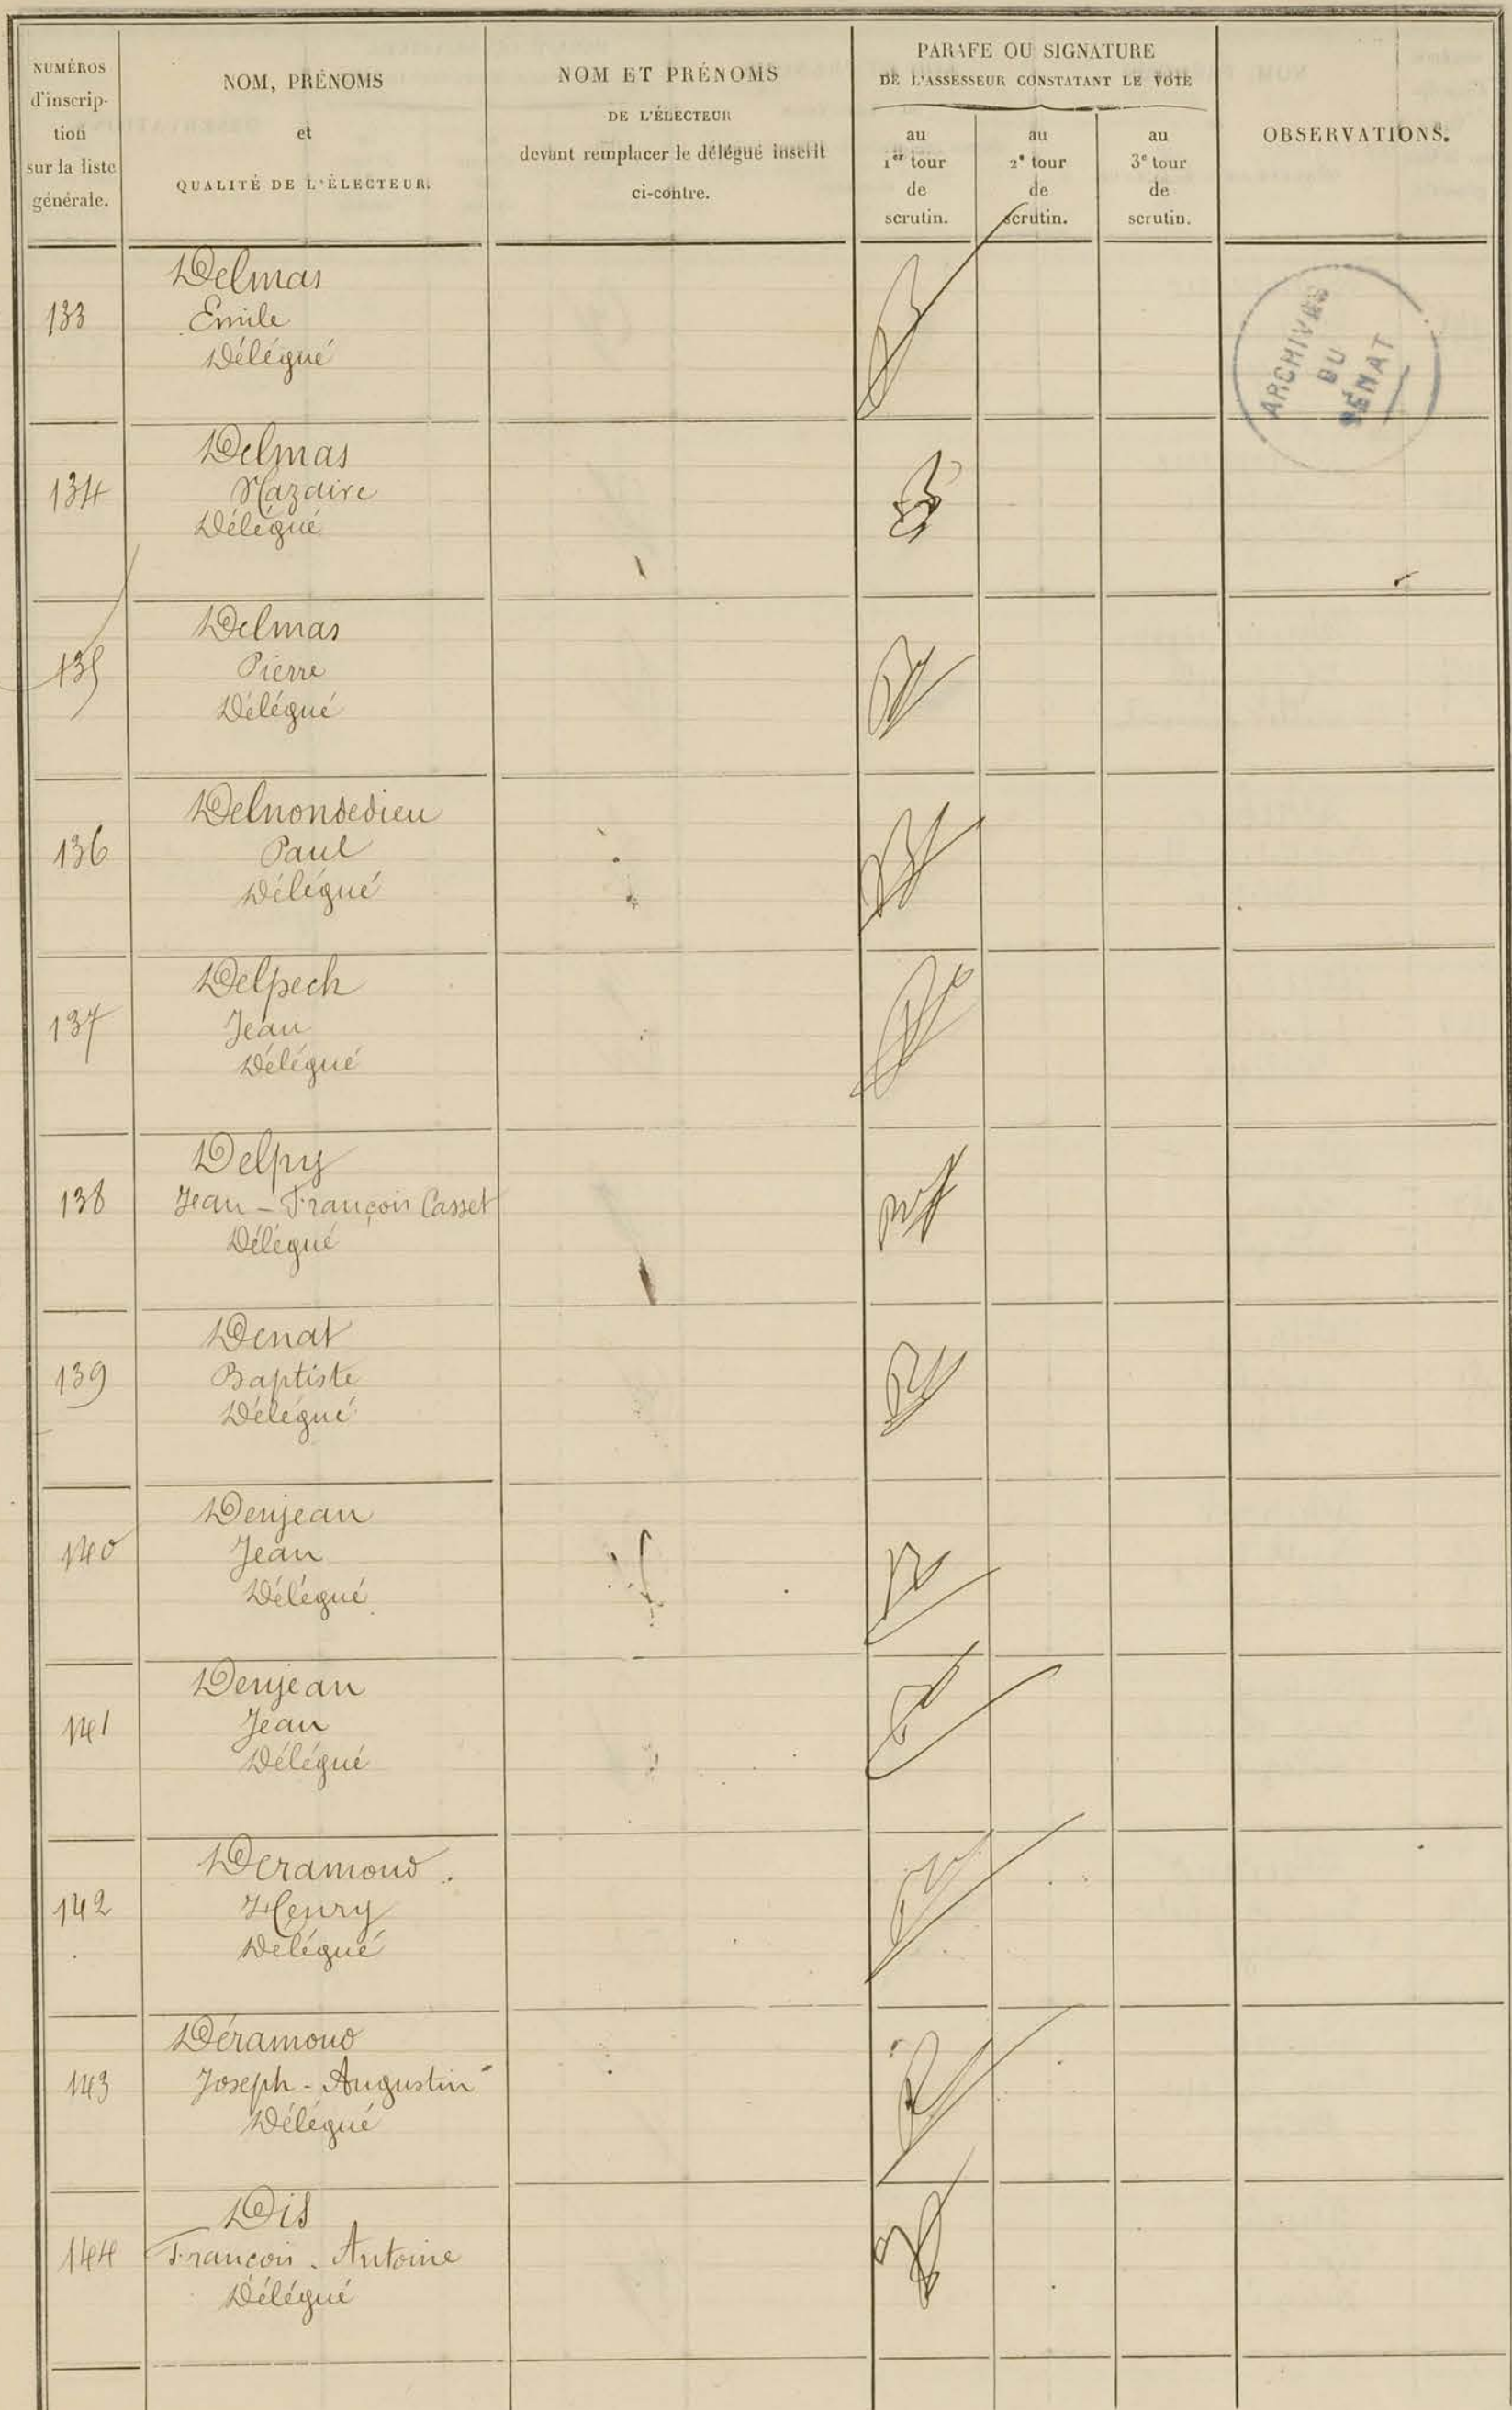 NUMÉROS
d'inscrip-
tion
sur la liste
générale.
NOM, PRÉNOMS
et
QUALITÉ DE L'ÉLECTEUR.
NOM ET PRÉNOMS
DE L'ÉLECTEUR
devant remplacer le délégué inscrit
ci-contre.
PARAFE OU SIGNATURE
DE L'ASSESSEUR CONSTATANT LE VOTE
au
1er tour
de
scrutin.
au
2e tour
de
scrutin.
au
3e tour
de
scrutin.
OBSERVATIONS.
ARCHIVES
DU
SÉNAT
133
Delmas
Emile
Délégué
134
Delmas
Nazaire
Délégué
135
Delmas
Pierre
Délégué
136
Delnondedieu
Paul
Délégué
137
Delpech
Jean
Délégué
138
Delpy
Jean-François Casset
Délégué
139
Denat
Baptiste
Délégué
140
Denjean
Jean
Délégué
141
Denjean
Jean
Délégué
142
Deramond.
Henry
Délégué
143
Déramond
Joseph-Augustin
Délégué
144
Dis
François. Antoine
Délégué